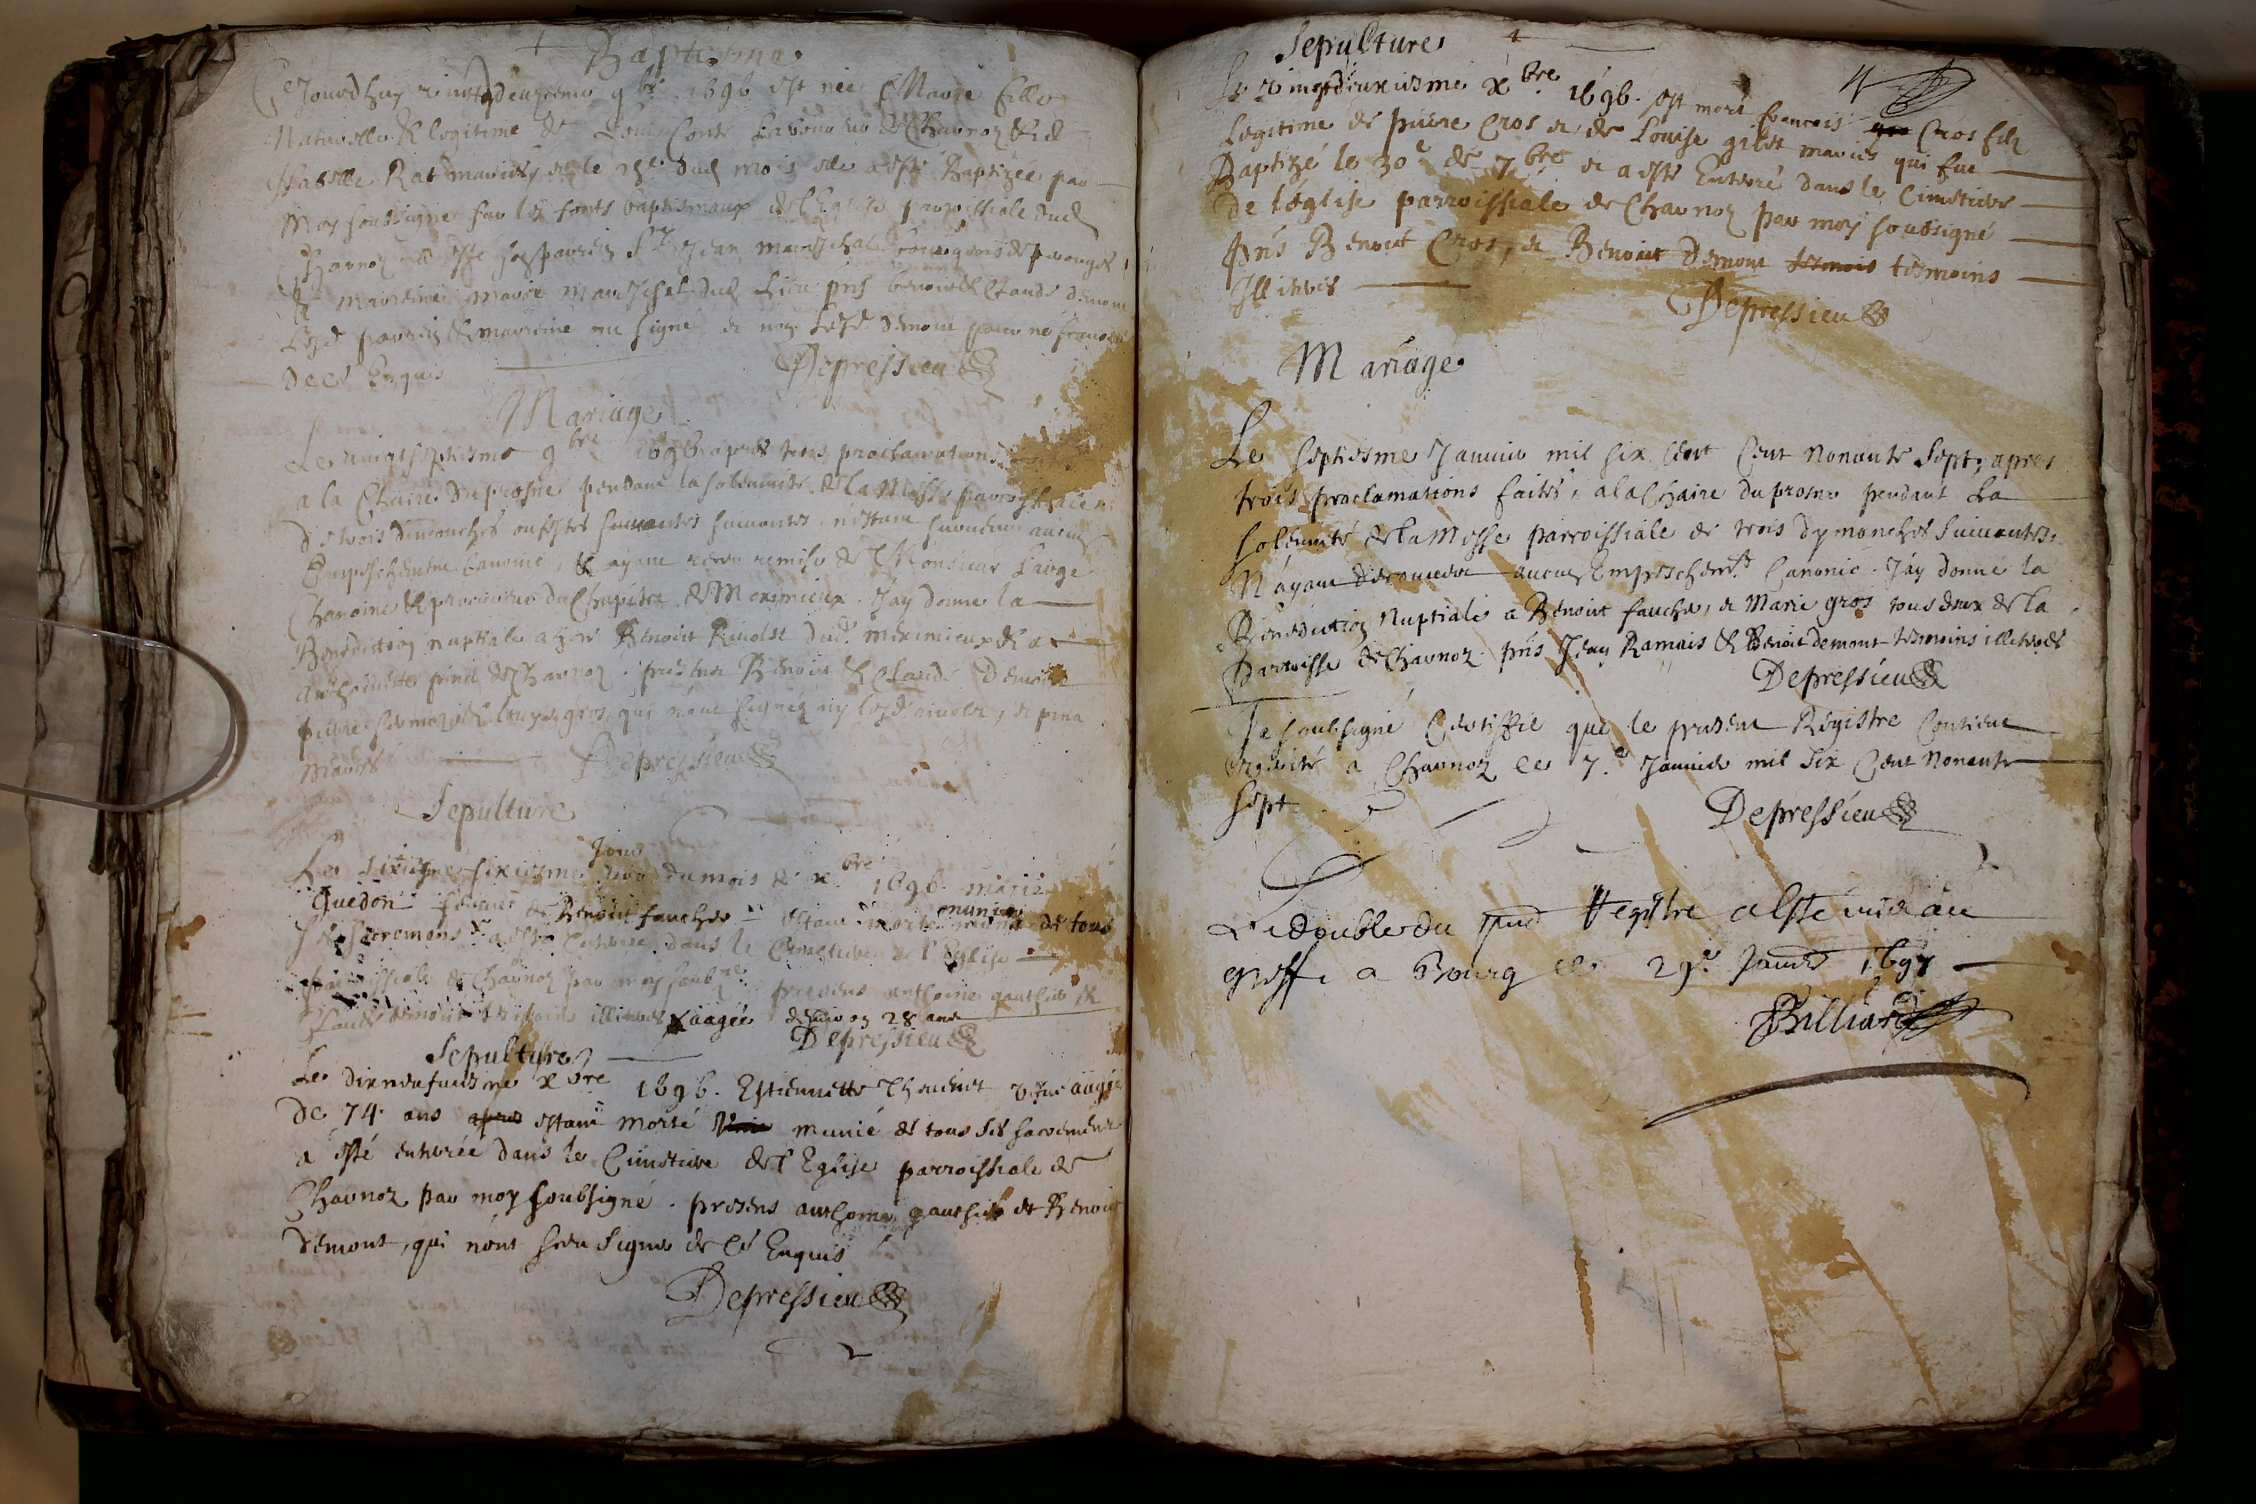 Baptesme
Cejourdhuy vingtdeuxiesme 9bre 1696 est née Marie fille
Naturelle & legitime de Louis Conte Laboureur de Charnoz & d
Issabelle Rat mariés, et le dud mois elle a esté Baptizée par
Moy soubsigné sur les fonts baptismaux de l'Eglise parroissiale dud
Charnoz
Marreine Marie Mareschal dud lieu pñs benoit & Claude demont
Lesd parrein & marreine ont signé et non lesd demont pour ne scavoir
de ce Enquis
Depressieu
Mariage
Le vingtseptiesme 9bre 1696 apres trois proclamations
a la Chaire du prosne pendant la solemnité de la Messe parroissiale
de trois dimanches ou festes suivantes n'estant survenu aucun
Empeschement Canonic, & ayant receu remise de Monsieur Large
Chanoine & procureur du Chapitre de Meximieux. J'ay donné la
Benediction nuptiale a Benoit Rivolet dud. Meximieux & a
Anthoinette pinet de Charnoz. presens Benoit & Claude Demont
pierre & Louys gros, qui n'ont signez ny lesd
mariés
Depressieu
Sepulture
Jour
Le sixiesme du mois de xbre 1696. marie
Guedon femme de Benoit faucher estant morte munie de tous
ses sacremens a esté enterrée dans le Cimetiere de l'Eglise
parroissiale de Charnoz par moy soubné. presens anthoine gauthier &
Claude demont tesmoins illiteres aagée d'environ 28 ans
Depressieu
Sepulture
Le dixneufuiesme xbre 1696. Estiennette Thouenet vefue aagée
de 74. ans apres estant morte munie de tous ses sacremens
a esté enterrée dans le Cimetiere de l'Eglise parroissiale de
Charnoz par moy soubsigné. presens anthoine gauthier et Benoit
demont, qui n'ont sceu signer de ce Enquis
Depressieu
Sepulture
4
Le vingtdeuxiesme xbre 1696. est mort francois Cros fils
Legitime de pierre Cros et de Louise gilet mariés qui fut
Baptizé le 30e de 7bre et a esté Enterré dans le Cimetiere
de l'Eglise parroissiale de Charnoz par moy soubsigné
Pñs Benoit Cros, et Benoit demont tesmois tesmoins
Illiteres
Depressieu
Mariage
Le septiesme Janvier mil six Cent Cent nonante sept, apres
trois proclamations faites, a la Chaire du prosne pendant La
solemnité de la Messe parroissiale de trois dymanches suivantes
N'ayant decouvert aucun Empeschemt Canonic. J'ay donné la
Benediction Nuptiale a Benoit faucher, et Marie gros tous deux de la
parroisse de Charnoz. pñs Jean Ramais & Benoit demont tesmoins illiteres
Depressieu
Je soubsigné Certiffie que le present Registre Contient
verité a Charnoz ce 7.e Janvier mil six Cent Nonante
sept
Depressieu
Le double du pnt Registre a esté mis au
greffe a Bourg ce 29e Janvr 1697
Billiard